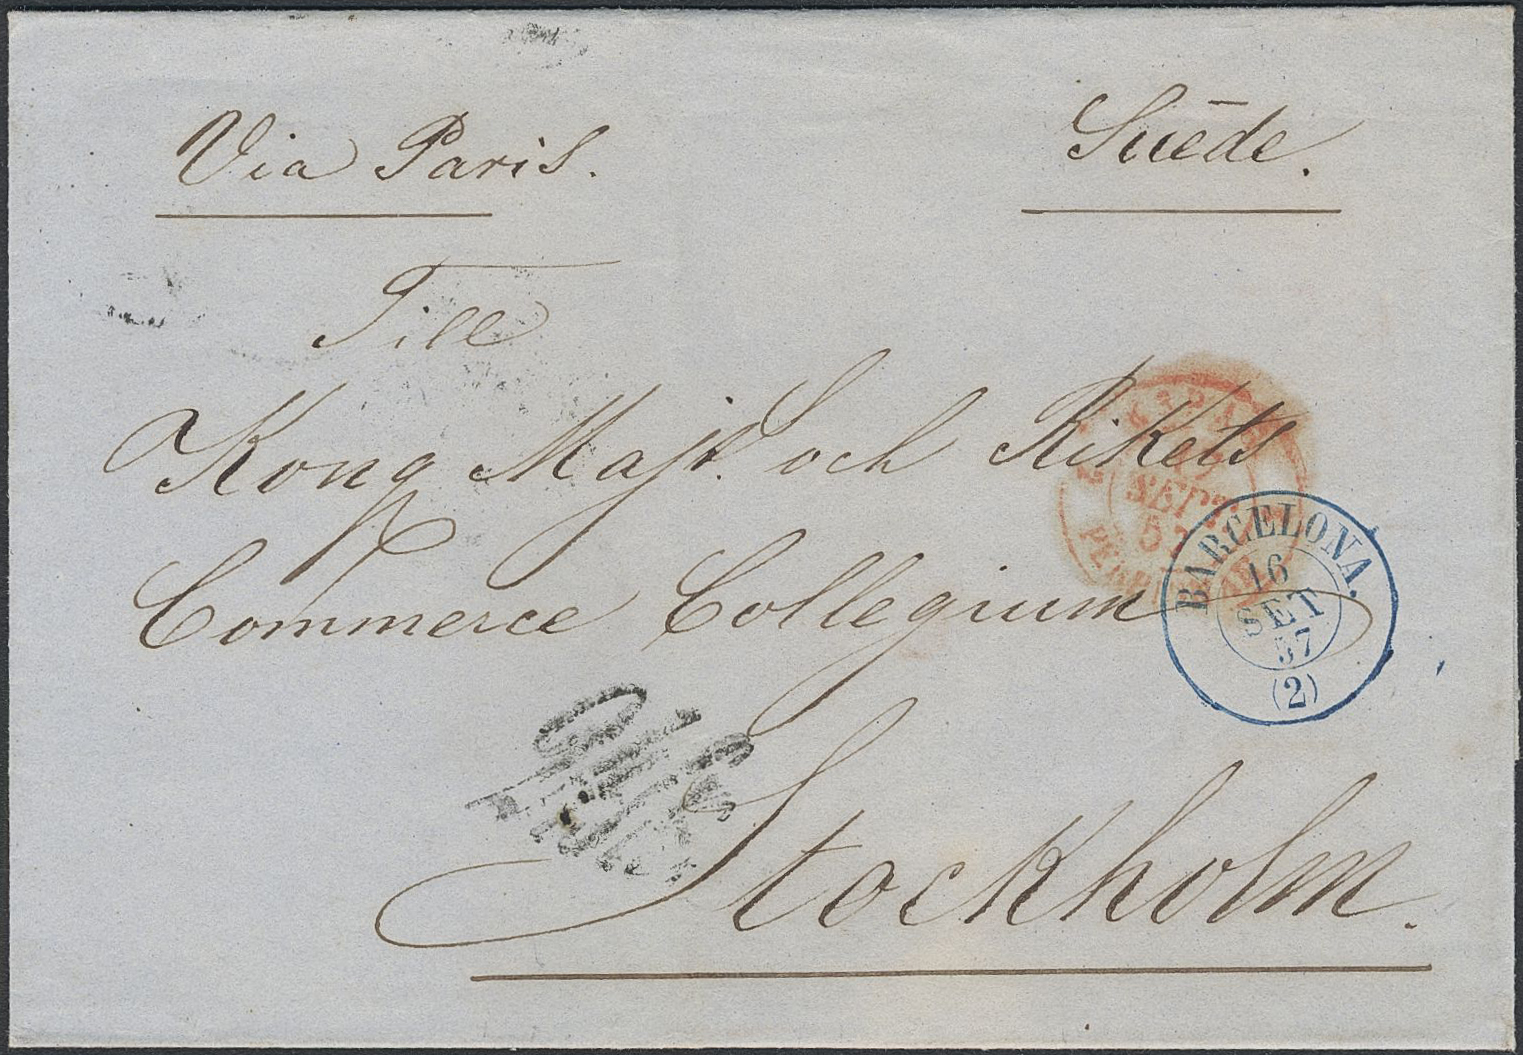 Via Paris.
Suēde.
Till
Kong Majt. och Rikets
Commerce Collegium
Stockholm.
BARCELONA.
16
SET
57
(2)
SEPT